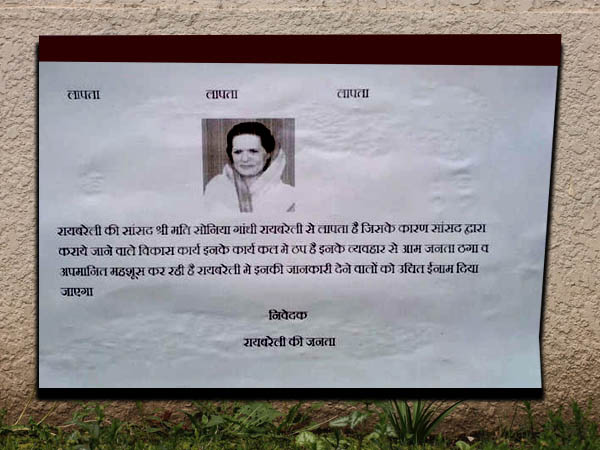 लापता लापता लापता
रायबरेली की सांसद श्री मति सोनिया गांधी रायबरेली से लापता है जिसके कारण सांसद द्वारा
कराये जाने वाले विकास कार्य इनके कार्य कल मे ठप है इनके व्यवहार से आम जनता ठगा व
अपमानित महशूस कर रही है रायबरेली मे इनकी जानकारी देने वालों को उचित ईनाम दिया
जाएगा
निवेदक
रायबरेली की जनता